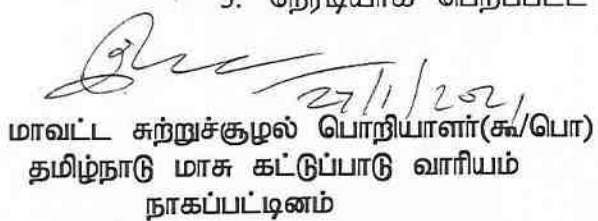 3. நேரடியாக பெறப்பட்ட
27/1/2021
மாவட்ட சுற்றுச்சூழல் பொறியாளர்(கூ/பொ)
தமிழ்நாடு மாசு கட்டுப்பாடு வாரியம்
நாகப்பட்டினம்